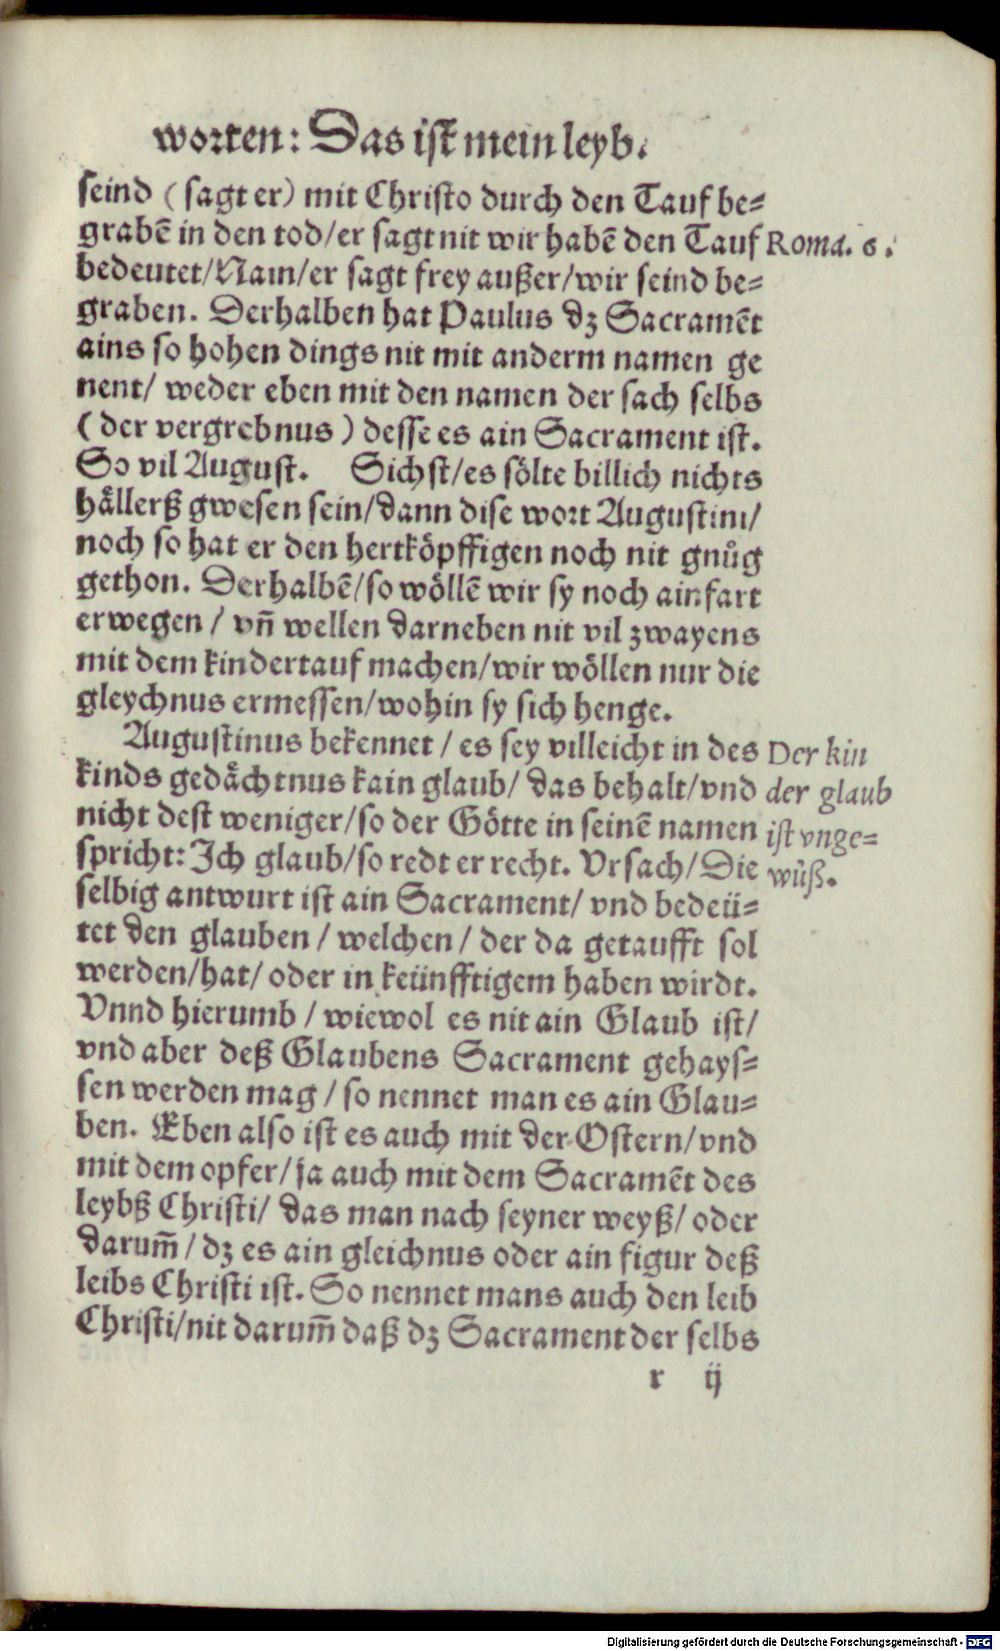 worten: Das ist mein leyb.
seind (sagt er) mit Christo durch den Tauf be⸗
grabē in den tod/er sagt nit wir habē den Tauf
Roma. 6.
bedeutet/Nain/er sagt frey außer/wir seind be⸗
graben. Derhalben hat Paulus dz Sacramēt
ains so hohen dings nit mit anderm namen ge
nent/ weder eben mit den namen der sach selbs
(der vergrebnus) desse es ain Sacrament ist.
So vil August. Sichst/es sölte billich nichts
hällerß gwesen sein/dann dise wort Augustini/
noch so hat er den hertköpffigen noch nit gnůg
gethon. Derhalbē/so wöllē wir sy noch ainfart
erwegen / vn̄ wellen darneben nit vil zwayens
mit dem kindertauf machen/wir wöllen nur die
gleychnus ermessen/wohin sy sich henge.
Augustinus bekennet / es sey villeicht in des
kinds gedächtnus kain glaub/ das behalt/vnd
nicht dest weniger/so der Götte in seinē namen
spricht: Ich glaub/so redt er recht. Vrsach/Die
Der kin
der glaub
ist vnge⸗
wüß.
selbig antwurt ist ain Sacrament/ vnd bedeü⸗
tet den glauben / welchen / der da getaufft sol
werden/hat/ oder in keünfftigem haben wirdt.
Vnnd hierumb / wiewol es nit ain Glaub ist/
vnd aber deß Glaubens Sacrament gehays⸗
sen werden mag / so nennet man es ain Glau⸗
ben. Eben also ist es auch mit der Ostern/vnd
mit dem opfer/ja auch mit dem Sacramēt des
leybß Christi/ das man nach seyner weyß/ oder
darum̄ / dz es ain gleichnus oder ain figur deß
leibs Christi ist. So nennet mans auch den leib
Christi/nit darum̄ daß dz Sacrament der selbs
r ij
Digitalisierung gefördert durch die Deutsche Forschungsgemeinschaft - DFG